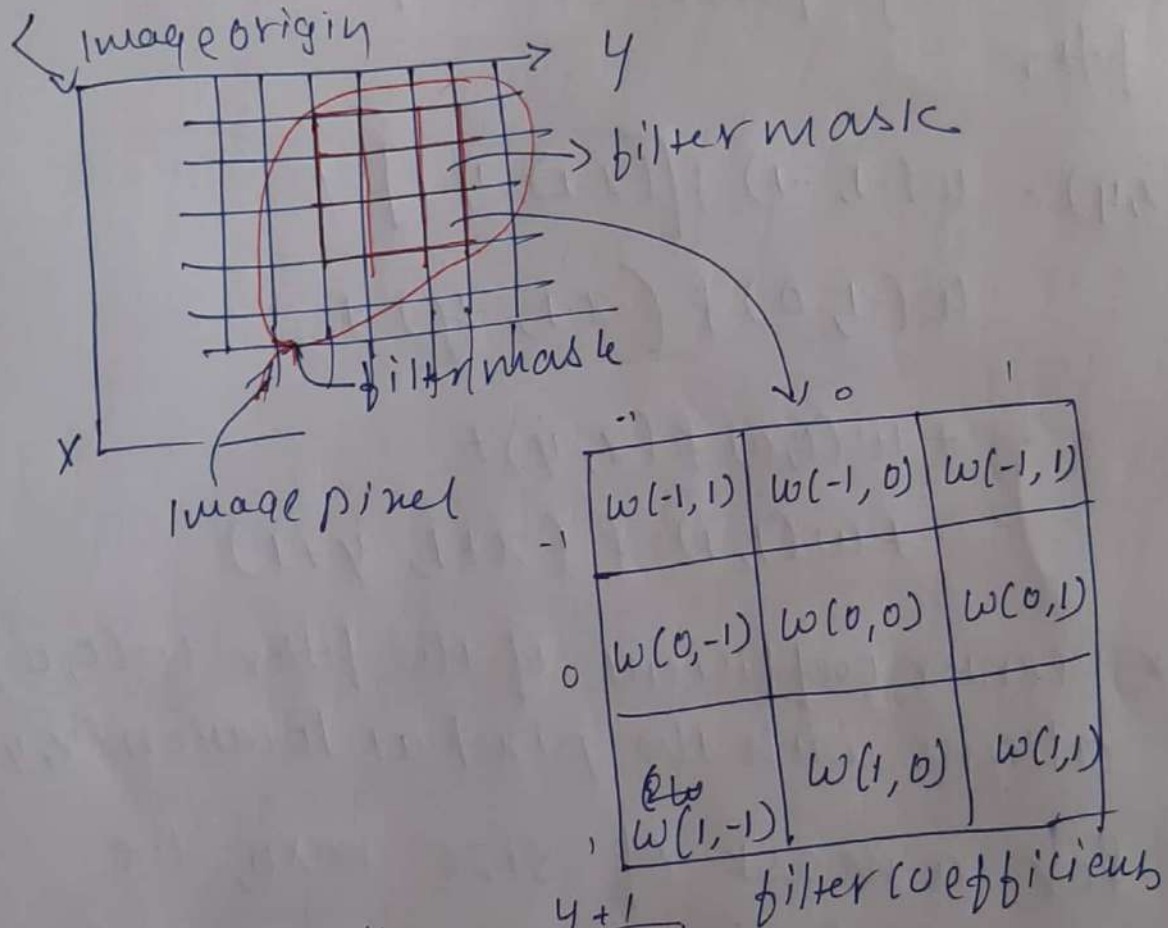 Image origin
y
filter mask
filter mask
X
Image pixel
-1 0 1
-1
w(-1, 1) w(-1, 0) w(-1, 1)
0
w(0,-1) w(0,0) w(0,1)
1
w(1,-1) w(1, 0) w(1,1)
filter coefficients
y + 1